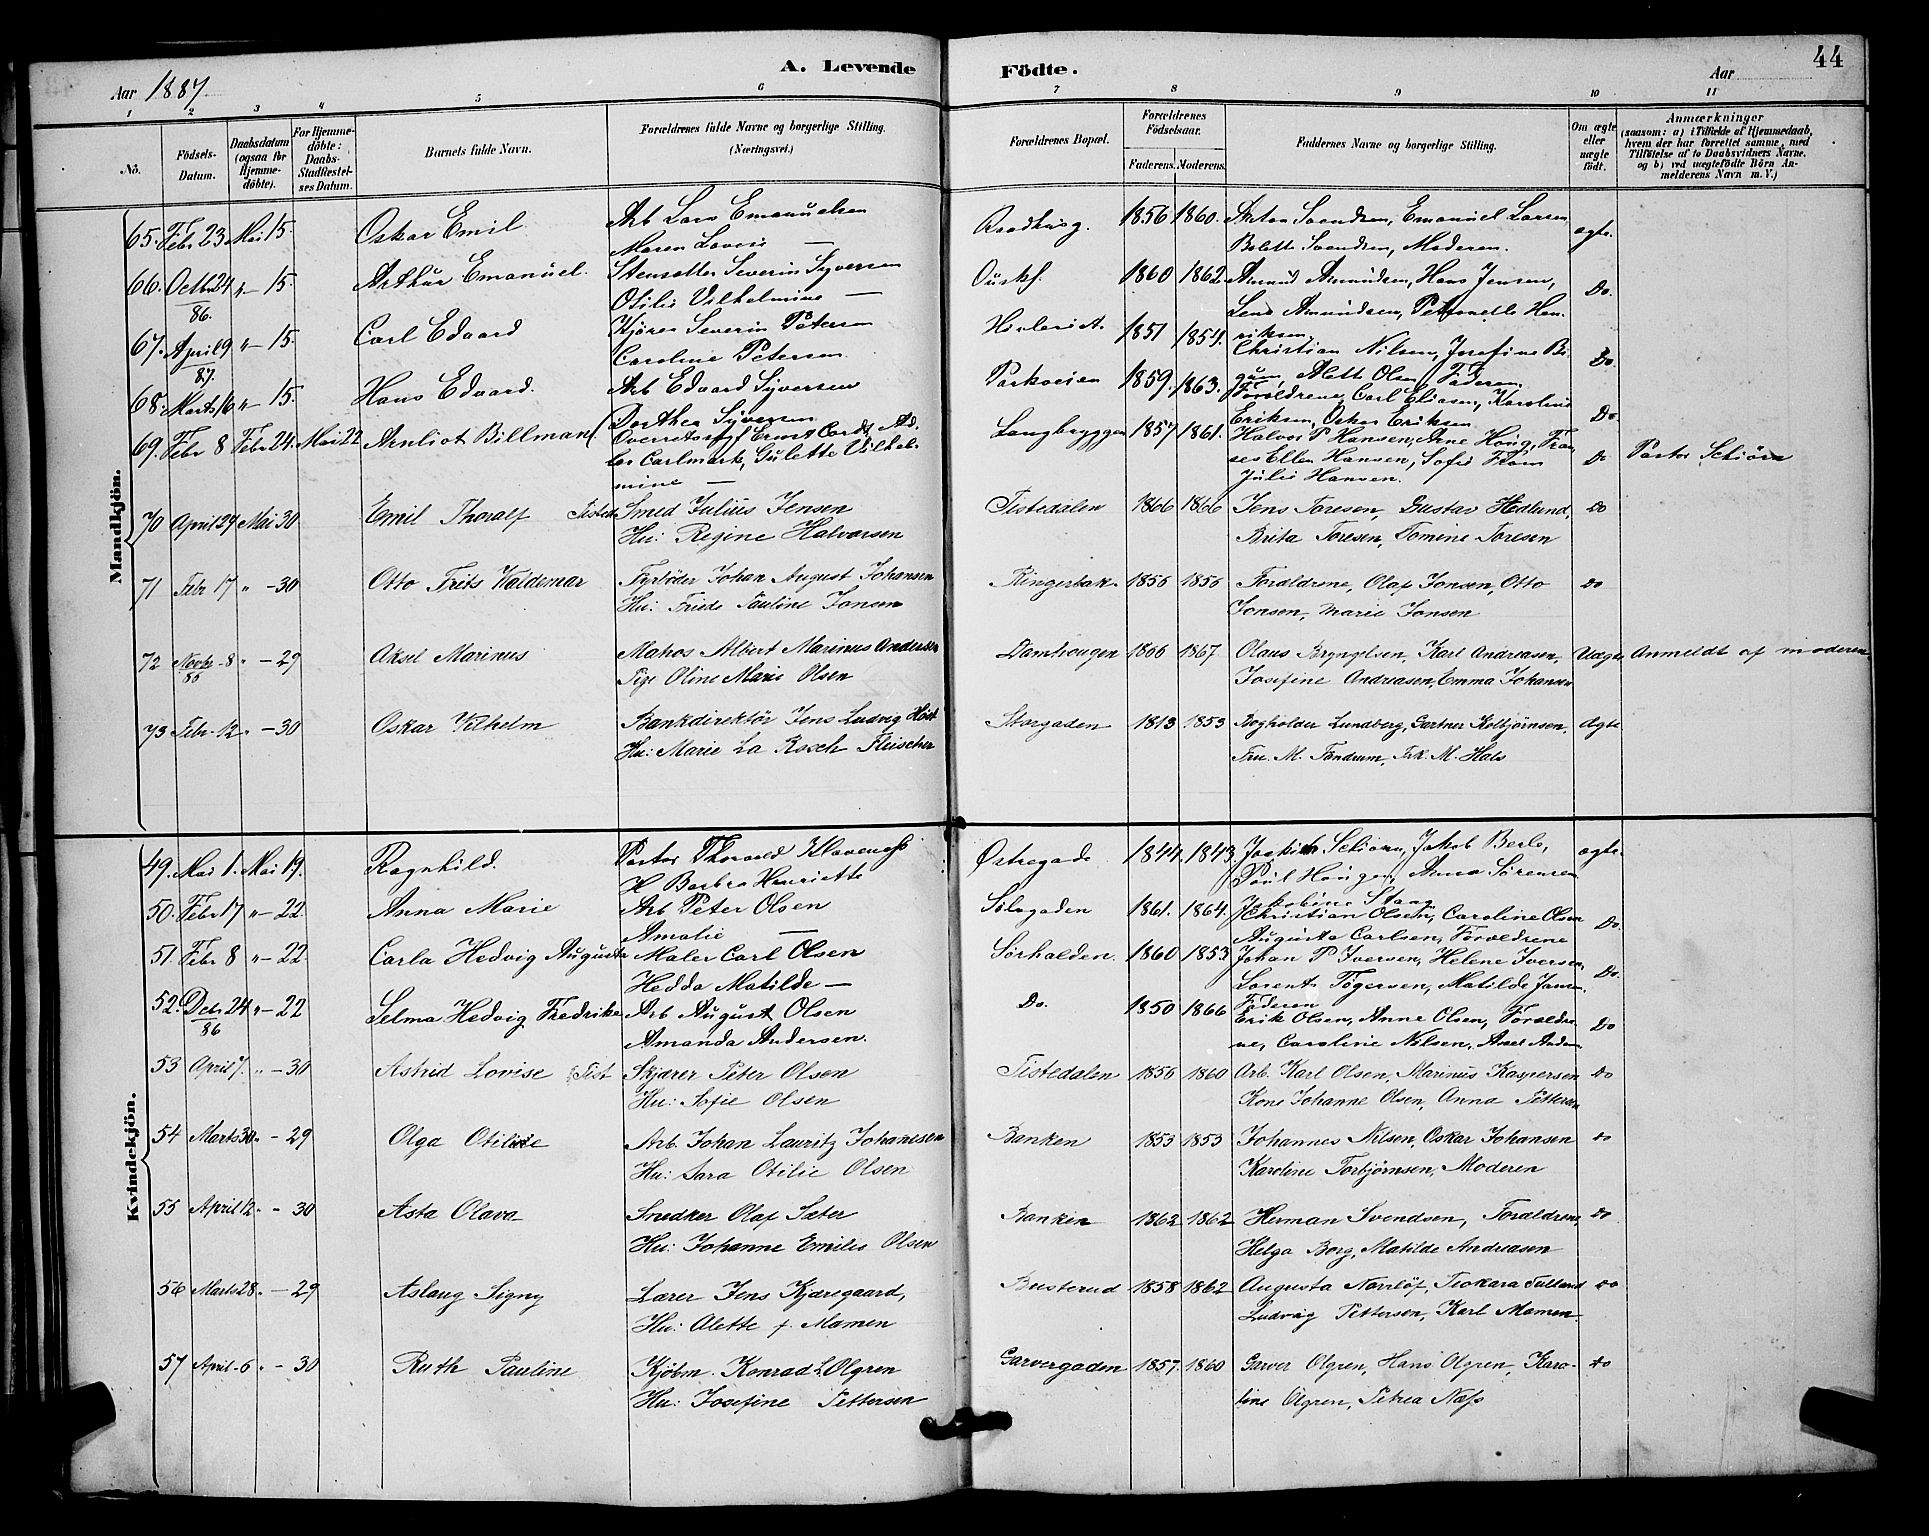 Aar 1887.
A. Levende Födte.
Aar
44
1 2 3 4 5 6 7 8 9 10 11
No.
Födsels-Datum.
Daabsdatum (ogsaa for Hjemme-döbte).
For Hjemme-döbte: Daabs-Stadfæstel-ses Datum.
Barnets fulde Navn.
Forældrenes fulde Navne og borgerlige Stilling. (Næringsvei.)
Forældrenes Bopæl.
Forældrenes Födselsaar.
Faderens. Moderens.
Faddernes Navne og borgerlige Stilling.
Om ægte eller uægte födt.
Anmærkninger
(saasom: a) i Tilfælde af Hjemmedaab,
hvem der har forrettet samme, med
Tilföielse af to Daabsvidners Navne.
og b) ved uægtefödte Börn An-
melderens Navn m. V.)
Mandkjön.
65. Febr 23 Mai 15. Oskar Emil Arb Lars Emanuelsen 1856 1860. Anton Svendsen, Emanuel Larsen ægte.
Maren Lovise — Bolette Svendsen, Moderen.
66. Octbr 24 " 15. Arthur Emanuel. Severin Syversen 1860 1862. Amund Amundsen, Hans Jensen, Do.
86. Otilie Vilhelmine — Lene Amundsen, Petronelle Hen-
67. April 9 " 15. Carl Edvard Kjörer Severin Petersen 1851 1854. riksen, Do
87. Caroline Petersen. Christian Nilsen, Josefine Bi-
68. Marts 16 " 15. Hans Edvard. Arb Edvard Syversen Parkveien 1859. 1863. Mette Olsen, Faderen. Do
Dorthea Syversen Forældrene, Carl Eliasen, Karoline
Eriksen, Oskar Eriksen
69. Febr 8 Febr 24. Mai 22 Arnliot Billman Ernst Ad. Langbryggen 1857 1861. Halvor P Hansen, Arne Houg, Fran- Do Pastor Schiörn
ler Carlmark, Gulette Vilhel- ses Ellen Hansen, Sofie Fram
mine — Julie Hansen.
70 April 29 Mai 30 Emil Thoralf Smed Julius Jensen Tistedalen 1866 1866 Jens Toresen, Gustav Hedlund, Do
Hu: Regine Halvorsen Brita Toresen, Tomine Toresen
71 Febr 17 " -30 Otto Frits Valdemar Fyrböder Johan August Johansen 1856 1856 Forældrene, Olaf Jonsen, Otto Do
Hu: Pauline Jonsen Jonsen, Marie Jonsen
72 Novbr 8 " -29 Aksel Marinus Matros Albert Marinus Andersen Damhougen 1866 1867 Olaus Bryngelsen, Karl Andreasen, Uægte Anmeldt af moderen.
Pige Oline Marie Olsen Josefine Andreasen, Emma Johansen
73 Febr. 12 " -30 Oskar Vilhelm Bankdirektör Jens Ludvig Höst Storgaden 1813 1853 Bogholder Lundberg, Gartner Kolbjörnsen, Ægte
Hu: Marie La Roche Fleischer Fru. M. Tandrum, Frk. M. Hals
Kvindekjön.
49. Mai 1. Mai 19. Ragnhild. Pastor Thorvald Klavenes Östregade 1844. 1843. Joakim Schiörn, Jakob Berle, ægte.
H Barbra Henriette Poul Houge, Anna Sörensen
Jakobine Stang
50. Febr 17 " 22. Anna Marie Arb Peter Olsen Sölvgaden 1861. 1864. Christian Olsen, Caroline Olsen Do.
Amalie — Augusta Carlsen, Forældrene
51. Febr 8 " 22. Carla Hedvig Augusta Maler Carl Olsen Sörhalden. 1860 1853 Johan P Iversen, Helene Iversen, Do.
Hedda Matilde — Tögersen, Matilde
52. Debr 24 " 22 Selma Hedvig Fredrike Arb August Olsen Do. 1850 1866 Faderen
86 Amanda Andersen. Erik Olsen, Anne Olsen, Forældre- Do
ne, Caroline Nilsen,
53 April 7. " -30 Astrid Lovise Tist Skjærer Peter Olsen Tistedalen 1856 1860 Arb. Karl Olsen, Marinus Kaspersen Do
Hu: Sofie Olsen Kone Johanne Olsen, Anna Pettersen
54 Marts 30. - 29 Olga Otilie Arb. Johan Lauritz Johanesen Banken 1853 1853 Johannes Nilsen, Oskar Johansen Do
Hu: Sara Otilie Olsen Karoline Torbjörnsen, Moderen
55 April 12. - 30 Asta Olava Snedker Olaf Sæter Banken 1862 1862 Herman Svendsen, Forældrene, Do
Hu: Johanne Emilie Olsen Helga Borg, Matilde Andreasen
56 Marts 28. - 29 Aslaug Signy Lærer Jens Kjærgaard, Busterud 1858 1862 Augusta Do
Hu: Alette f. Mamen Ludvig Pettersen, Karl Mamen
57 April 6 " - 30 Ruth Pauline Kjöbm. Konrad L. Olgren Garvergaden 1857. 1860 Garver Olgren, Hans Olgren, Karo- Do
Hu: Josefine Pettersen line Olgren, Petrea Næss